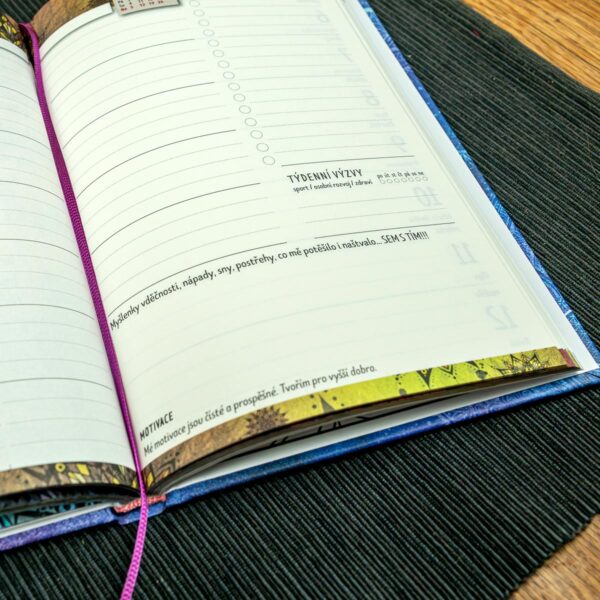 TÝDENNÍ VÝZVY
po út st čt pá so ne
sport / osobní rozvoj / zdraví
Myšlenky vděčnosti, nápady, sny, postřehy, co mě potěšilo i naštvalo... SEM S TÍM!!!
MOTIVACE
Mé motivace jsou čisté a prospěšné. Tvořím pro vyšší dobro.